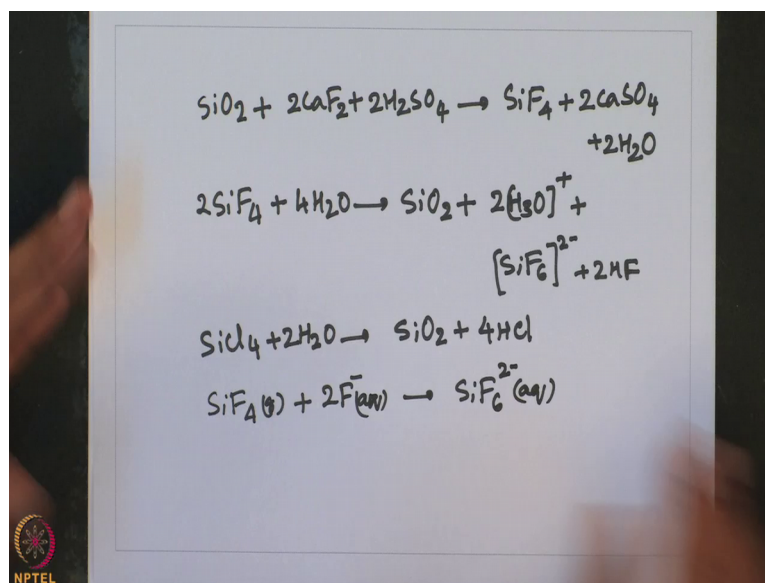 SiO₂ + 2CaF₂ + 2H₂SO₄ → SiF₄ + 2CaSO₄
+ 2H₂O
2SiF₄ + 4H₂O → SiO₂ + 2[H₃O]⁺ +
[SiF₆]²⁻ + 2HF
SiCl₄ + 2H₂O → SiO₂ + 4HCl
SiF₄(g) + 2F⁻(aq) → SiF₆²⁻(aq)
NPTEL